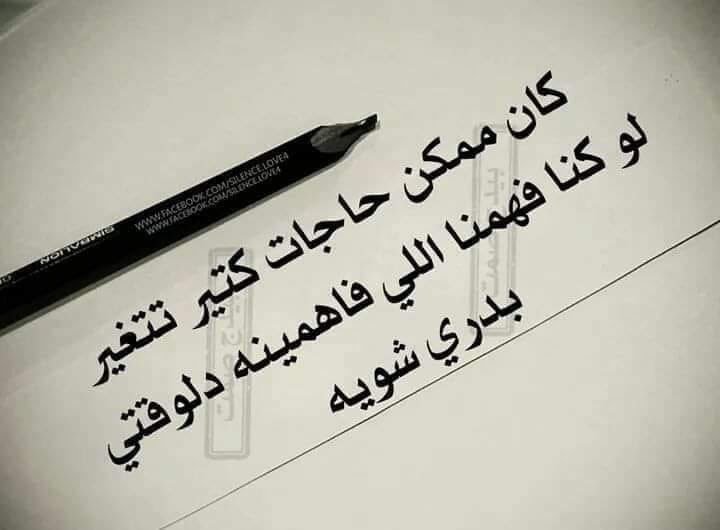 كان ممكن حاجات كتير تتغير
لو كنا فهمنا اللي فاهمينه دلوقتي
بدري شويه
WWW.FACEBOOK.COM/SILENCE.LOVE4
WWW.FACEBOOK.COM/SILENCE.LOVE4
SIMBALION
بيدج صمت
بيدج صمت